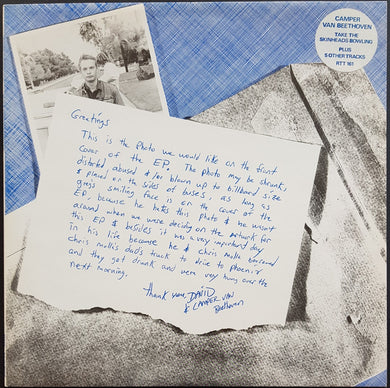 CAMPER
VAN BEETHOVEN
TAKE THE
SKINHEADS BOWLING
PLUS
5 OTHER TRACKS
RTT 161
Greetings
This is the photo we would like on the front
cover of the EP. The photo may be shrunk,
distorted abused &/or blown up to billboard size
& placed on the sides of buses, as long as
gregs smiling face is on the cover of the
EP, because he hates this photo & he wasnt
around when we were deciding on the artwork for
this EP & besides it was a very important day
in his life because he & chris molla borrowed
chris molla's dad's truck to drive to phoenix
and they got drunk and were very hung over the
next morning.
Thank you, DAVID
& CAMPER VAN
Beethoven